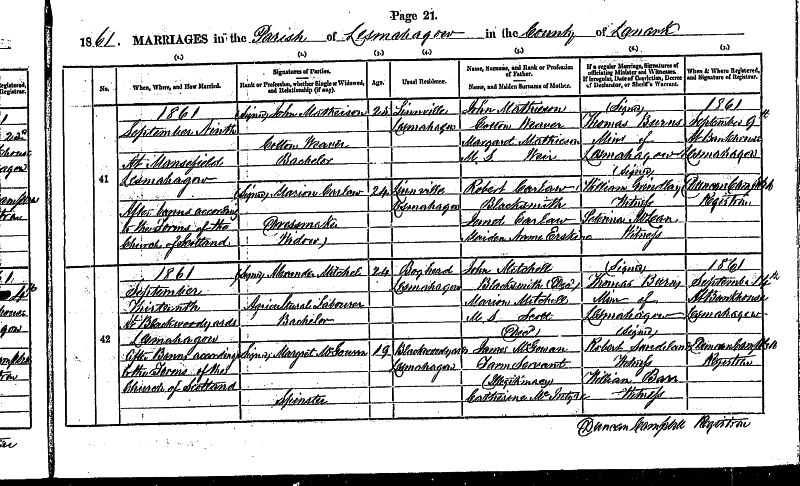 Page 21.
1861. MARRIAGES in the Parish of Lesmahagow in the County of Lanark
(1.) (2.) (3.) (4.) (5.) (6.) (7.)
No.
When, Where, and How Married.
Signatures of Parties.
Rank or Profession, whether Single or Widowed, and Relationship (if any).
Age.
Usual Residence.
Name, Surname, and Rank or Profession of Father.
Name, and Maiden Surname of Mother.
If a regular Marriage, Signatures of officiating Minister and Witnesses.
If irregular, Date of Conviction, Decree of Declarator, or Sheriff's Warrant.
When & Where Registered, and Signature of Registrar.
41
1861
September Ninth
At Mansefield
Lesmahagow
After banns according
to the Forms of the
Church of Scotland
(Signed) John Mathieson
Cotton Weaver
Bachelor
(Signed) Marion Carlaw
Dressmaker
(Widow)
24
24
Linnville
Lesmahagow
Linnville
Lesmahagow
John Mathieson
Cotton Weaver
Margaret Mathieson
M. S. Weir
Robert Carlaw
Blacksmith
Janet Carlaw
Maiden Name Erskine
(Signed)
Thomas Burns
Min. of
Lesmahagow
(Signed)
William
Witness
McLean
Witness
1861
September 9th
At Bankhouse
Lesmahagow
Duncan Campbell
Registrar
42
1861
September
Thirteenth
At Blackwoodyards
Lesmahagow
After Banns according
to the Forms of the
Church of Scotland
(Signed) Mitchell
Agricultural Labourer
Bachelor
(Signed) Margret McGowan
Spinster
24
19
Boghead
Lesmahagow
Blackwoodyards
Lesmahagow
John Mitchell
Blacksmith (Decd)
Marion Mitchell
M. S. Scott
(Decd)
James McGowan
Farm Servant
(Illegitimacy)
Catherine McIntyre
(Signed)
Thomas Burns
Min of
Lesmahagow
(Signed)
Robert Sandilands
Witness
William Barr
Witness
1861
September 14th
At Bankhouse
Lesmahagow
Duncan Campbell
Registrar
Duncan Campbell Registrar